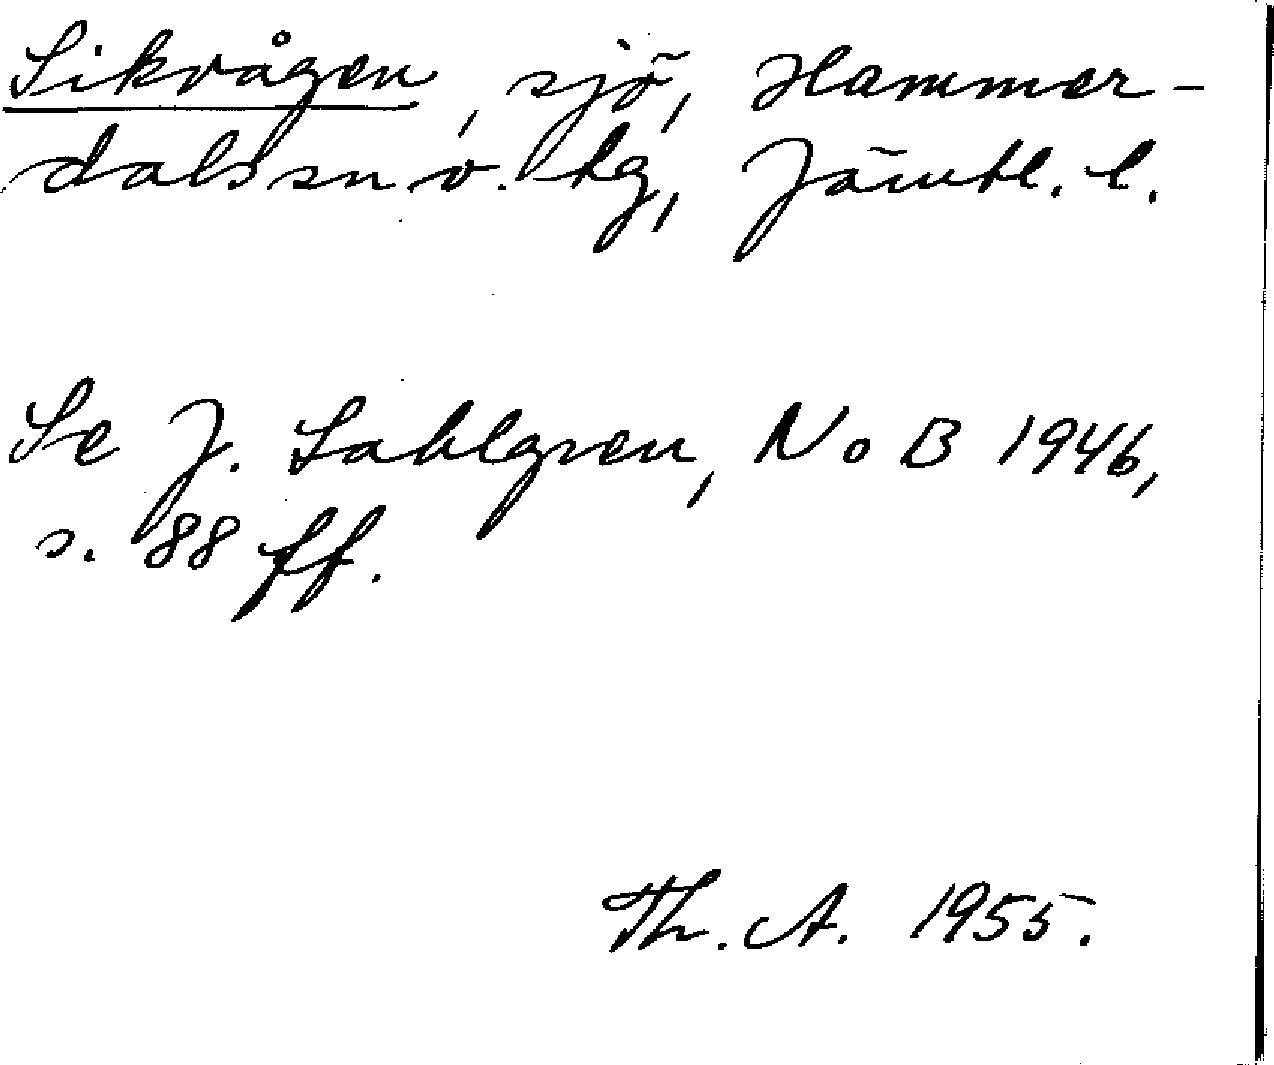 Sikvågen, sjö, Hammer-
dals sn o. tg, Jämtl. l.
Se J. Sahlgren, NoB 1946,
s. 88 ff.
Th. A. 1955.